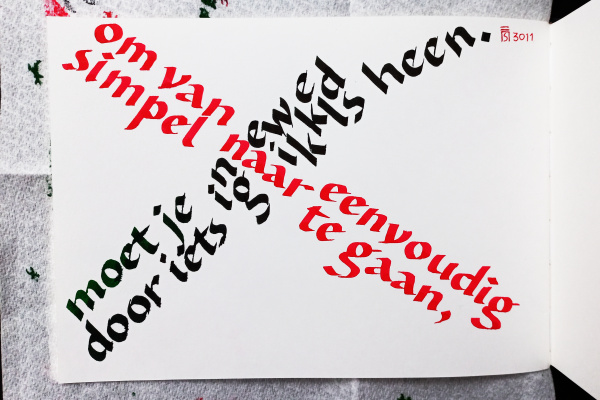 om van
simpel
naar
eenvoudig
te gaan,
moet je
door iets
ingewikkelds
heen.
3011